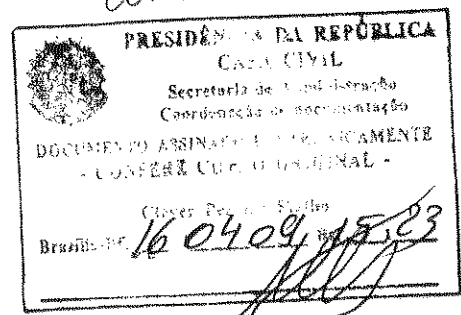 PRESIDÊNCIA DA REPÚBLICA
CASA CIVIL
Secretaria de Administração
Coordenação de Documentação
DOCUMENTO ASSINADO ELETRONICAMENTE
- CONFERE COM O ORIGINAL -
Brasília-DF, 16 04 09, 15:23